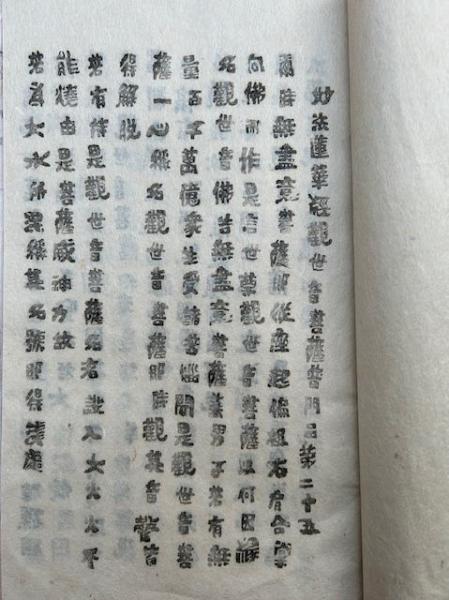 妙法蓮華經觀世音菩薩普門品第二十五
爾時無盡意菩薩即從座起偏袒右肩合掌
向佛而作是言世尊觀世音菩薩以何因緣
名觀世音佛告無盡意菩薩善男子若有無
量百千萬億衆生受諸苦惱聞是觀世音菩
薩一心稱名觀世音菩薩即時觀其音聲皆
得解脱
若有持是觀世音菩薩名者設入大火火不
能燒由是菩薩威神力故
若為大水所漂稱其名號即得淺處